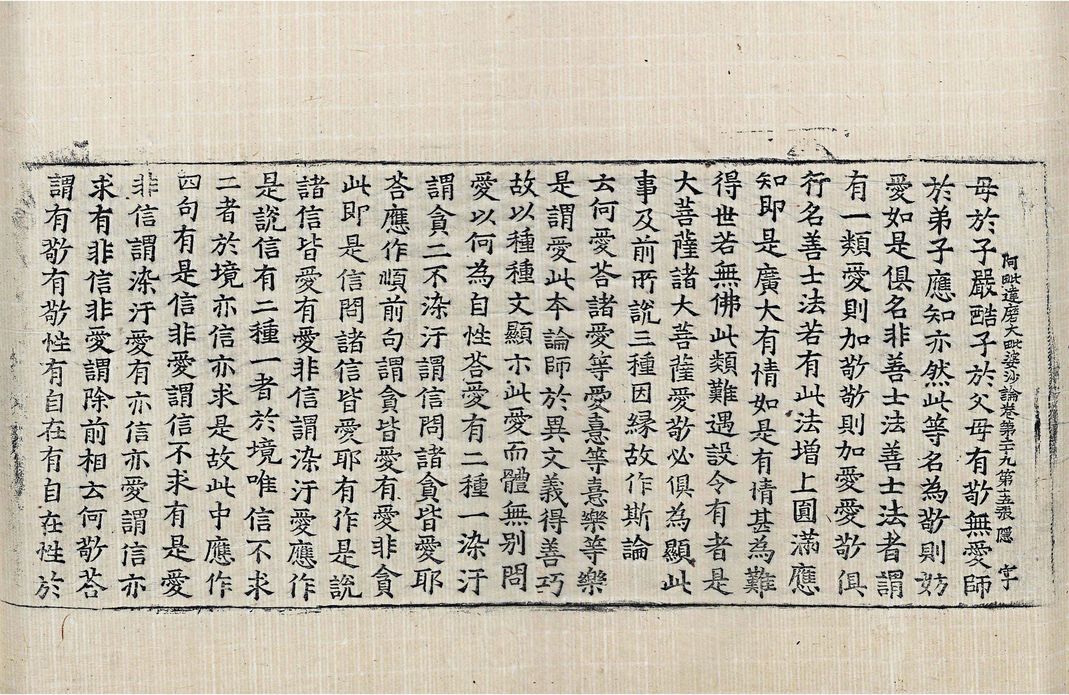 阿毗達磨大毗婆沙論卷第二十九第十五張 隱
母於子嚴酷子於父母有敬無愛師
於弟子應知亦然此等名為敬則妨
愛如是俱名非善士法善士法者謂
有一類愛則加敬敬則加愛愛敬俱
行名善士法若有此法增上圓滿應
知即是廣大有情如是有情甚為難
得世若無佛此類難遇設令有者是
大菩薩諸大菩薩愛敬必俱為顯此
事及前所說三種因緣故作斯論
云何愛荅諸愛等愛憙等憙樂等樂
是謂愛此本論師於異文義得善巧
故以種種文顯示此愛而體無別問
愛以何為自性荅愛有二種一染汙
謂貪二不染汙謂信問諸貪皆愛耶
荅應作順前句謂貪皆愛有愛非貪
此即是信問諸信皆愛耶有作是說
諸信皆愛有愛非信謂染汙愛應作
是說信有二種一者於境唯信不求
二者於境亦信亦求是故此中應作
四句有是信非愛謂信不求有是愛
非信謂染汙愛有亦信亦愛謂信亦
求有非信非愛謂除前相云何敬荅
謂有敬有敬性有自在有自在性於